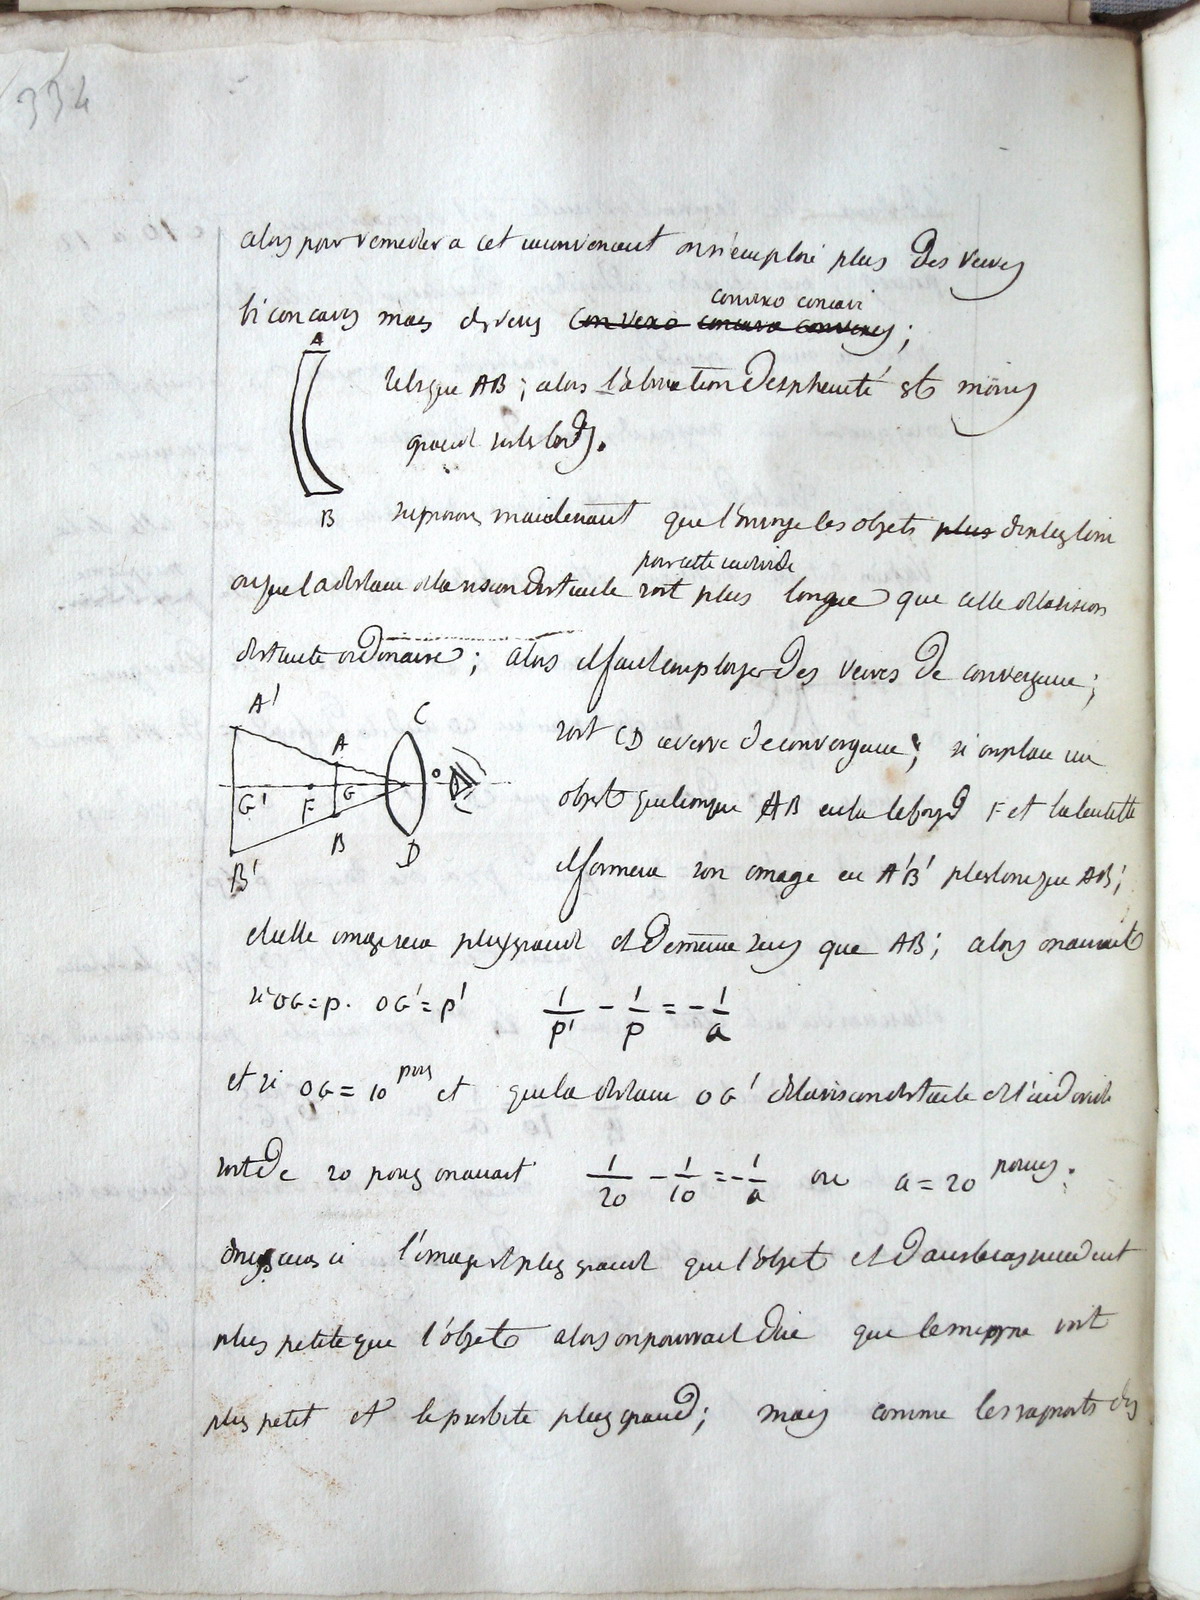 334
alors pour remedier a cet inconvenient on n'emploie plus des verres
convexo concavi
biconcaves mais des verres convexo concavo convexes ;
A
tels que AB ; alors l'aberration de sphericité est moins
grand sur les bords.
B
supposons maintenant que l'on voye les objets plus de plus loin
pour cette individu
ou que la distance de la vision distincte soit plus longue que celle de la vision
distincte ordinaire ; alors il faut employer des verres de convergence ;
A' C
soit CD ce verre de convergence ; si on place un
A O
G' F G
objet quelconque AB entre le foyer F et la lentille
B D
B'
il formera son image en A'B' plus loin que AB ;
et cette image sera plus grand et de même sens que AB ; alors on aurait
si OG = p. OG' = p' 1/p' - 1/p = - 1/a
et si OG = 10 pouces et que la distance OG' de la vision distincte de l'individu
soit de 20 pouces on aurait 1/20 - 1/10 = - 1/a ou a = 20 pouces.
l'image est plus grand que l'objet et dans le cas precedent
plus petite que l'objet alors on pourrait dire que le miope voit
plus petit et le presbite plus grand ; mais comme les rapports des